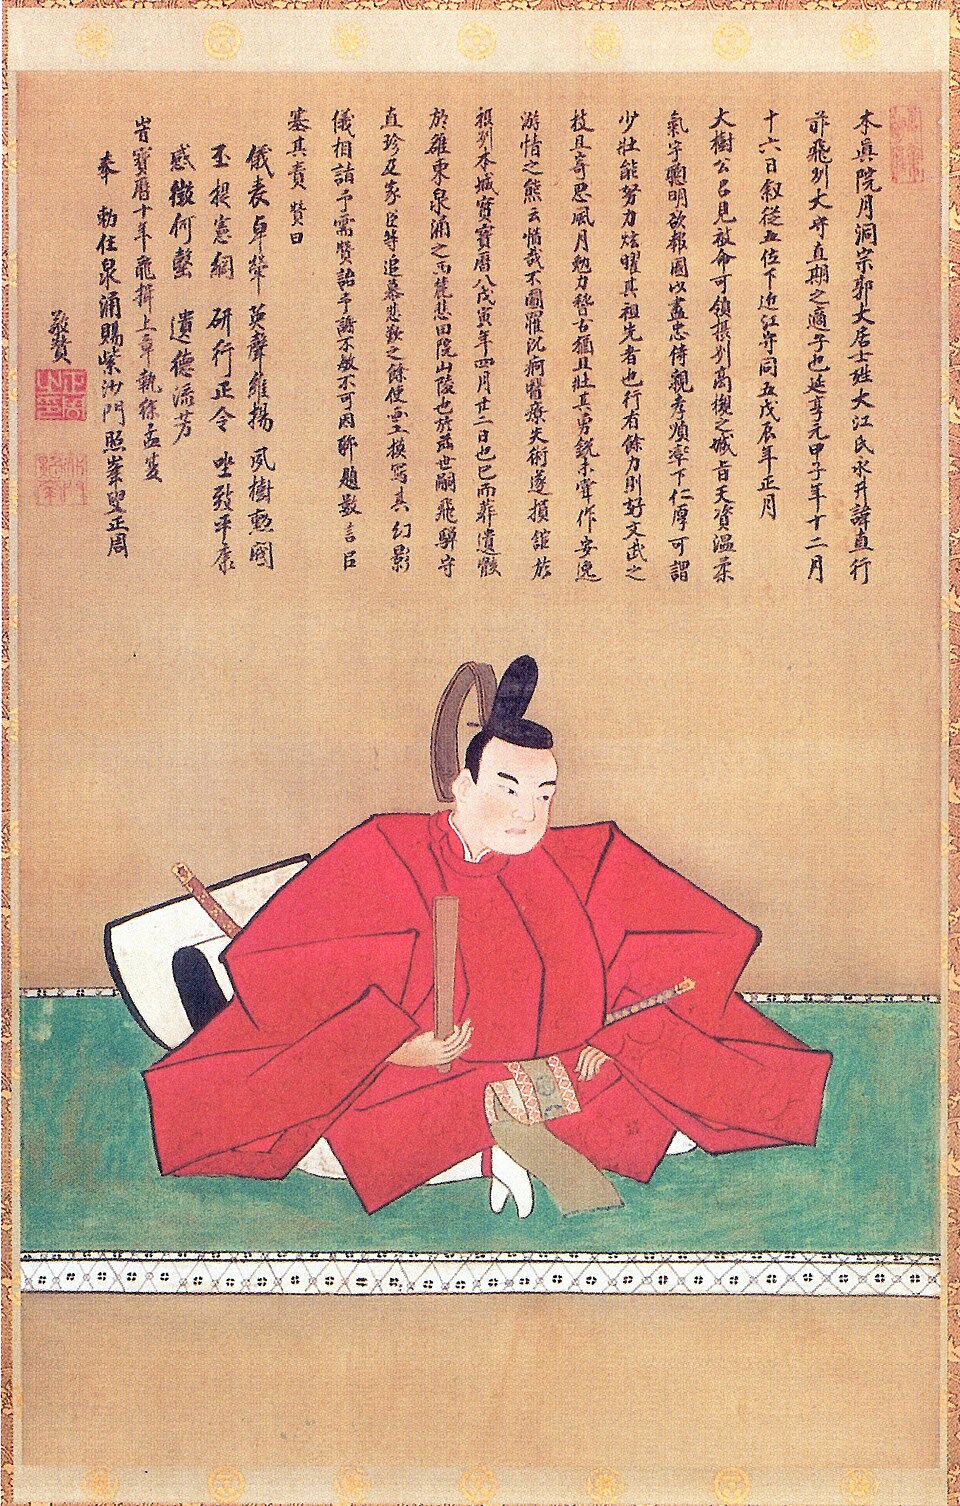 本眞院月洞宗郭大居士姓大江氏永井諱直行
前飛州大守直期之適子也延享元甲子年十二月
十六日叙從五位下近江守同五戊辰年正月
大樹公召見被命可領摂州高槻之城旨天資温柔
氣宇聰明欲報國以盡忠侍親孝順率下仁厚可謂
少壮能努力炫曜其祖先者也行有餘力則好文武之
枝且寄思風月勉力稽古猶且壮其勇鋭未嘗作安逸
游惰之態云惜哉不圖罹沈痾醫療失術遂損舘於
摂州本城實寶暦八戊寅年四月廿二日也已而葬遺骸
於雒東泉涌之西麓悲田院山陵也於茲世嗣飛騨守
直珍及家臣等追慕悲歎之餘使畫工摸寫其幻影
儀相請予需賛詞予不敏不可固辞題數言以
塞其責 賛曰
儀表卓犖 英聲維揚 夙樹勲國
丕提憲綱 研行正令 坐致平康
感徴何罄 遺徳流芳
旹寶暦十年龍揖上章執徐孟夏
奉 勅住泉涌賜紫沙門照峯正周
敬賛